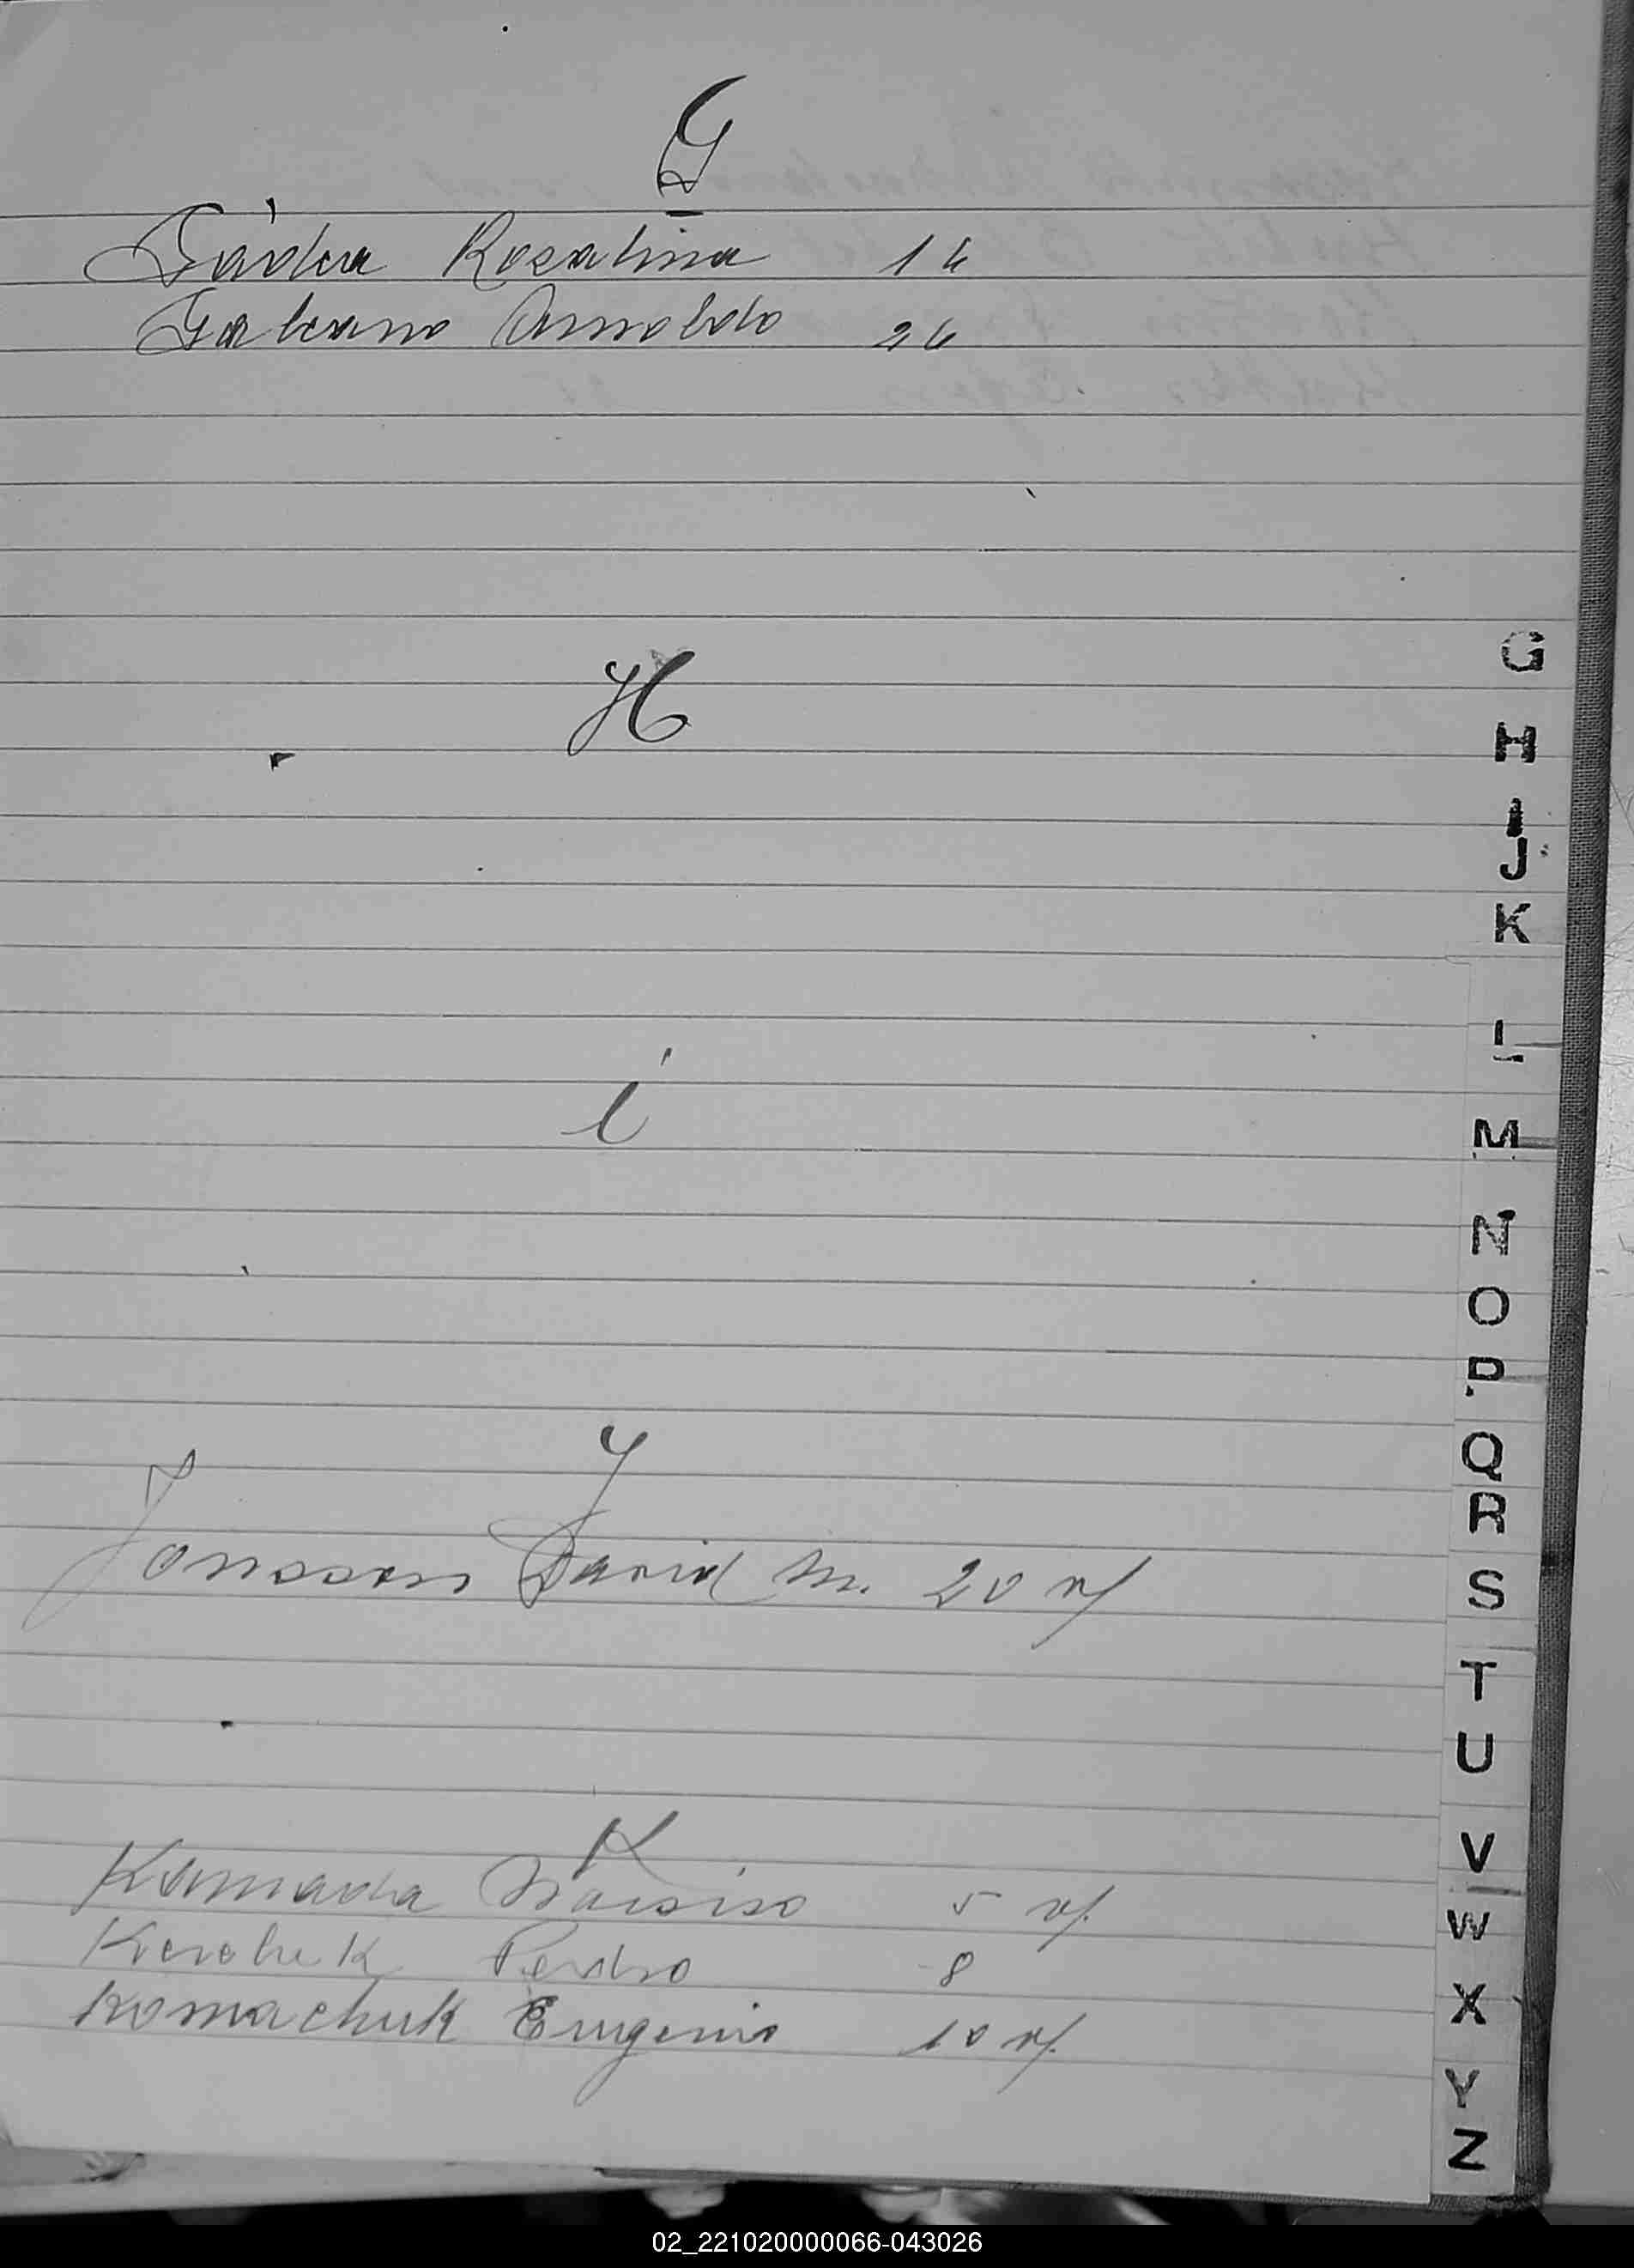 G
Rosalina 14
Galeano Arnoldo 26
H
i
J
Jonsson David M. 20 v/
K
Kamada Narciso 5 v/.
Pedro 8
Komachuk Eugenio 10 v/.
G
H
I
J
K
L
M
N
O
P
Q
R
S
T
U
V
W
X
Y
Z
02_221020000066-043026